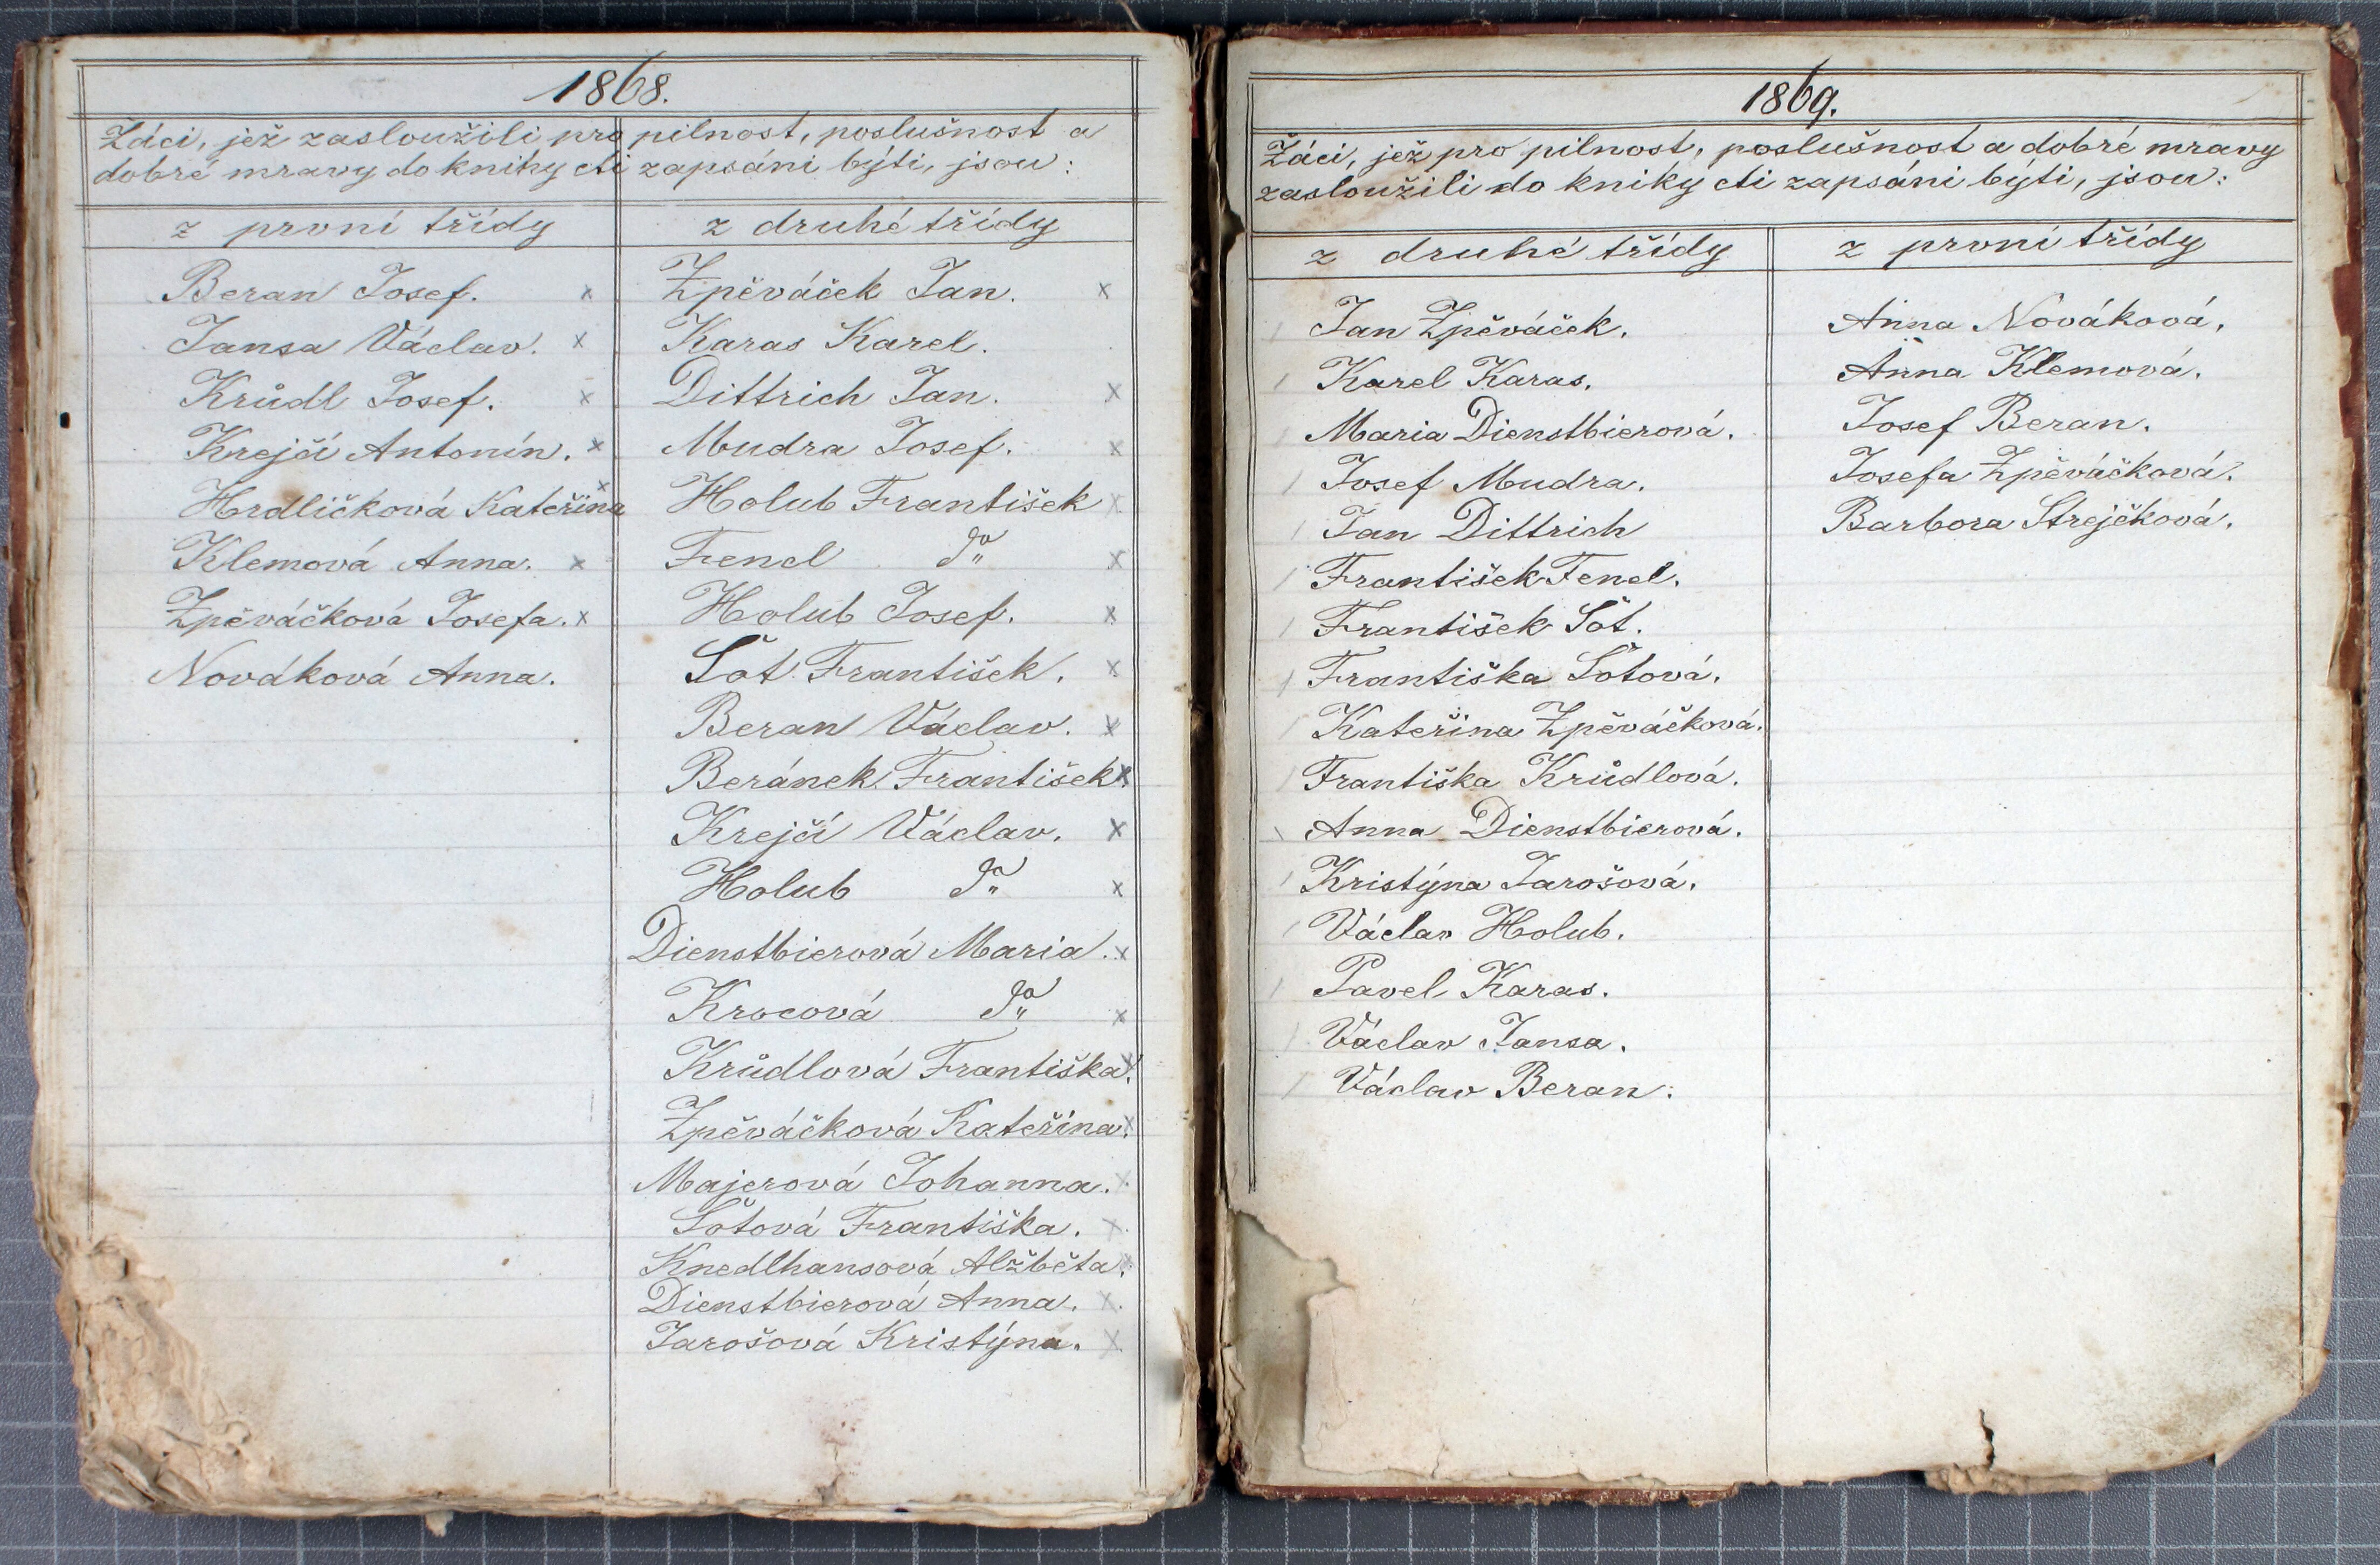 1868.
Žáci, jež zasloužili pro pilnost, poslušnost a
dobré mravy do knihy cti zapsáni býti, jsou:
z první třídy
Beran Josef. x
Jansa Václav. x
Krůdl Josef. x
Krejčí Antonín. x
Hrdličková Kateřina x
Klemová Anna. x
Zpěváčková Josefa. x
Nováková Anna.
z druhé třídy
Zpěváček Jan. x
Karas Karel.
Dittrich Jan. x
Mudra Josef. x
Holub František x
Fencl do x
Holub Josef. x
Šot František. x
Beran Václav. x
Beránek František. x
Krejčí Václav. x
Holub do x
Dienstbierová Maria. x
Krocová do x
Krůdlová Františka. x
Zpěváčková Kateřina. x
Majerová Johanna. x
Šotová Františka. x
Knedlhansová Alžběta. x
Dienstbierová Anna. x
Jarošová Kristýna. x
1869.
Žáci, jež pro pilnost, poslušnost a dobré mravy
zasloužili do kniky cti zapsáni býti, jsou:
z druhé třídy
/ Jan Zpěváček.
/ Karel Karas.
/ Maria Dienstbierová.
/ Josef Mudra.
/ Jan Dittrich
/ František Fencl.
/ František Šot.
/ Františka Šotová.
/ Kateřina Zpěváčková.
/ Františka Krůdlová.
\ Anna Dienstbierová.
/ Kristýna Jarošová.
/ Václav Holub.
/ Pavel Karas.
/ Václav Jansa.
/ Václav Beran.
z první třídy
Anna Nováková.
Anna Klemová.
Josef Beran.
Josefa Zpěváčková.
Barbora Strejčková.